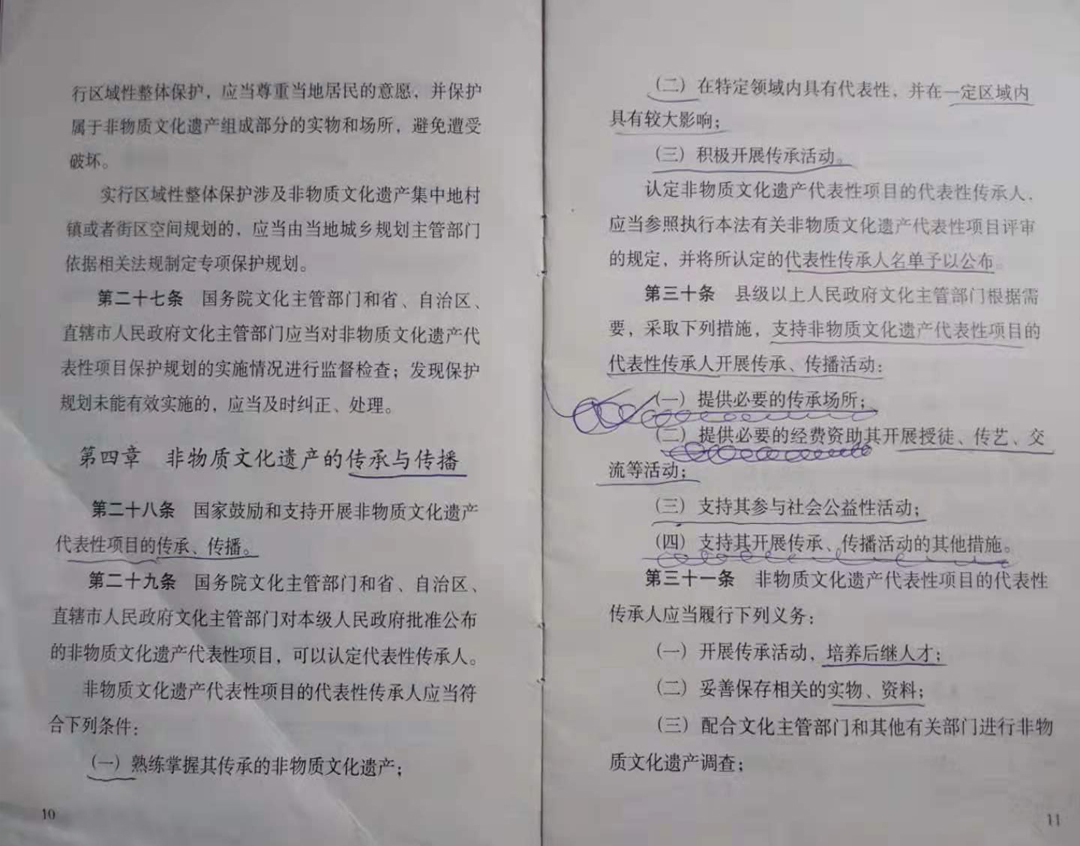 行区域性整体保护，应当尊重当地居民的意愿，并保护
属于非物质文化遗产组成部分的实物和场所，避免遭受
破坏。
实行区域性整体保护涉及非物质文化遗产集中地村
镇或者街区空间规划的，应当由当地城乡规划主管部门
依据相关法规制定专项保护规划。
第二十七条　国务院文化主管部门和省、自治区、
直辖市人民政府文化主管部门应当对非物质文化遗产代
表性项目保护规划的实施情况进行监督检查；发现保护
规划未能有效实施的，应当及时纠正、处理。
第四章　非物质文化遗产的传承与传播
第二十八条　国家鼓励和支持开展非物质文化遗产
代表性项目的传承、传播。
第二十九条　国务院文化主管部门和省、自治区、
直辖市人民政府文化主管部门对本级人民政府批准公布
的非物质文化遗产代表性项目，可以认定代表性传承人。
非物质文化遗产代表性项目的代表性传承人应当符
合下列条件：
（一）熟练掌握其传承的非物质文化遗产；
10
（二）在特定领域内具有代表性，并在一定区域内
具有较大影响；
（三）积极开展传承活动。
认定非物质文化遗产代表性项目的代表性传承人，
应当参照执行本法有关非物质文化遗产代表性项目评审
的规定，并将所认定的代表性传承人名单予以公布。
第三十条　县级以上人民政府文化主管部门根据需
要，采取下列措施，支持非物质文化遗产代表性项目的
代表性传承人开展传承、传播活动：
（一）提供必要的传承场所；
（二）提供必要的经费资助其开展授徒、传艺、交
流等活动；
（三）支持其参与社会公益性活动；
（四）支持其开展传承、传播活动的其他措施。
第三十一条　非物质文化遗产代表性项目的代表性
传承人应当履行下列义务：
（一）开展传承活动，培养后继人才；
（二）妥善保存相关的实物、资料；
（三）配合文化主管部门和其他有关部门进行非物
质文化遗产调查；
11